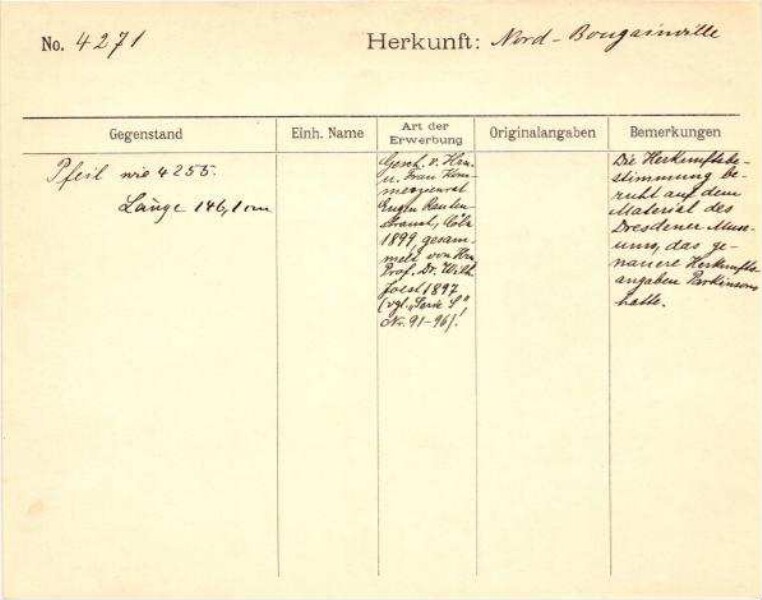 No. 4271
Herkunft: Nord-Bougainville
Gegenstand
Einh. Name
Art der
Erwerbung
Originalangaben
Bemerkungen
Pfeil wie 4255.
Länge 146,1 cm
Gesch. v. Hrn.
u. Frau Kom-
merzienrat
Eugen Rauten-
strauch, Cöln
1899, gesam-
melt von Hrn
Prof. Dr. Wilh.
Joest 1897
(vgl. „Serie S"
Nr. 91-96)!
Die Herkunftsbe-
stimmung be-
ruht auf dem
Material des
Dresdener Muse-
ums, das ge-
nauere Herkunfts-
angaben Parkinsons
hatte.